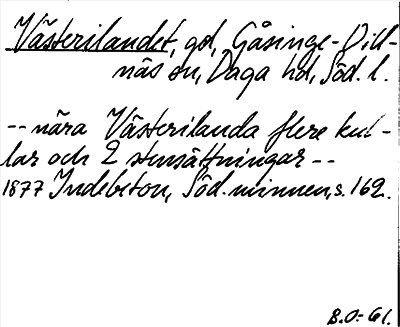 Västerilandet, gd, Gåsinge-Dill-
näs sn, Daga hd, Söd. l.
-- nära Västerilanda flere kul-
lar och 2 stensättningar --
1877 Indebetou, Söd. minnen, s. 162.
B.O. 61.